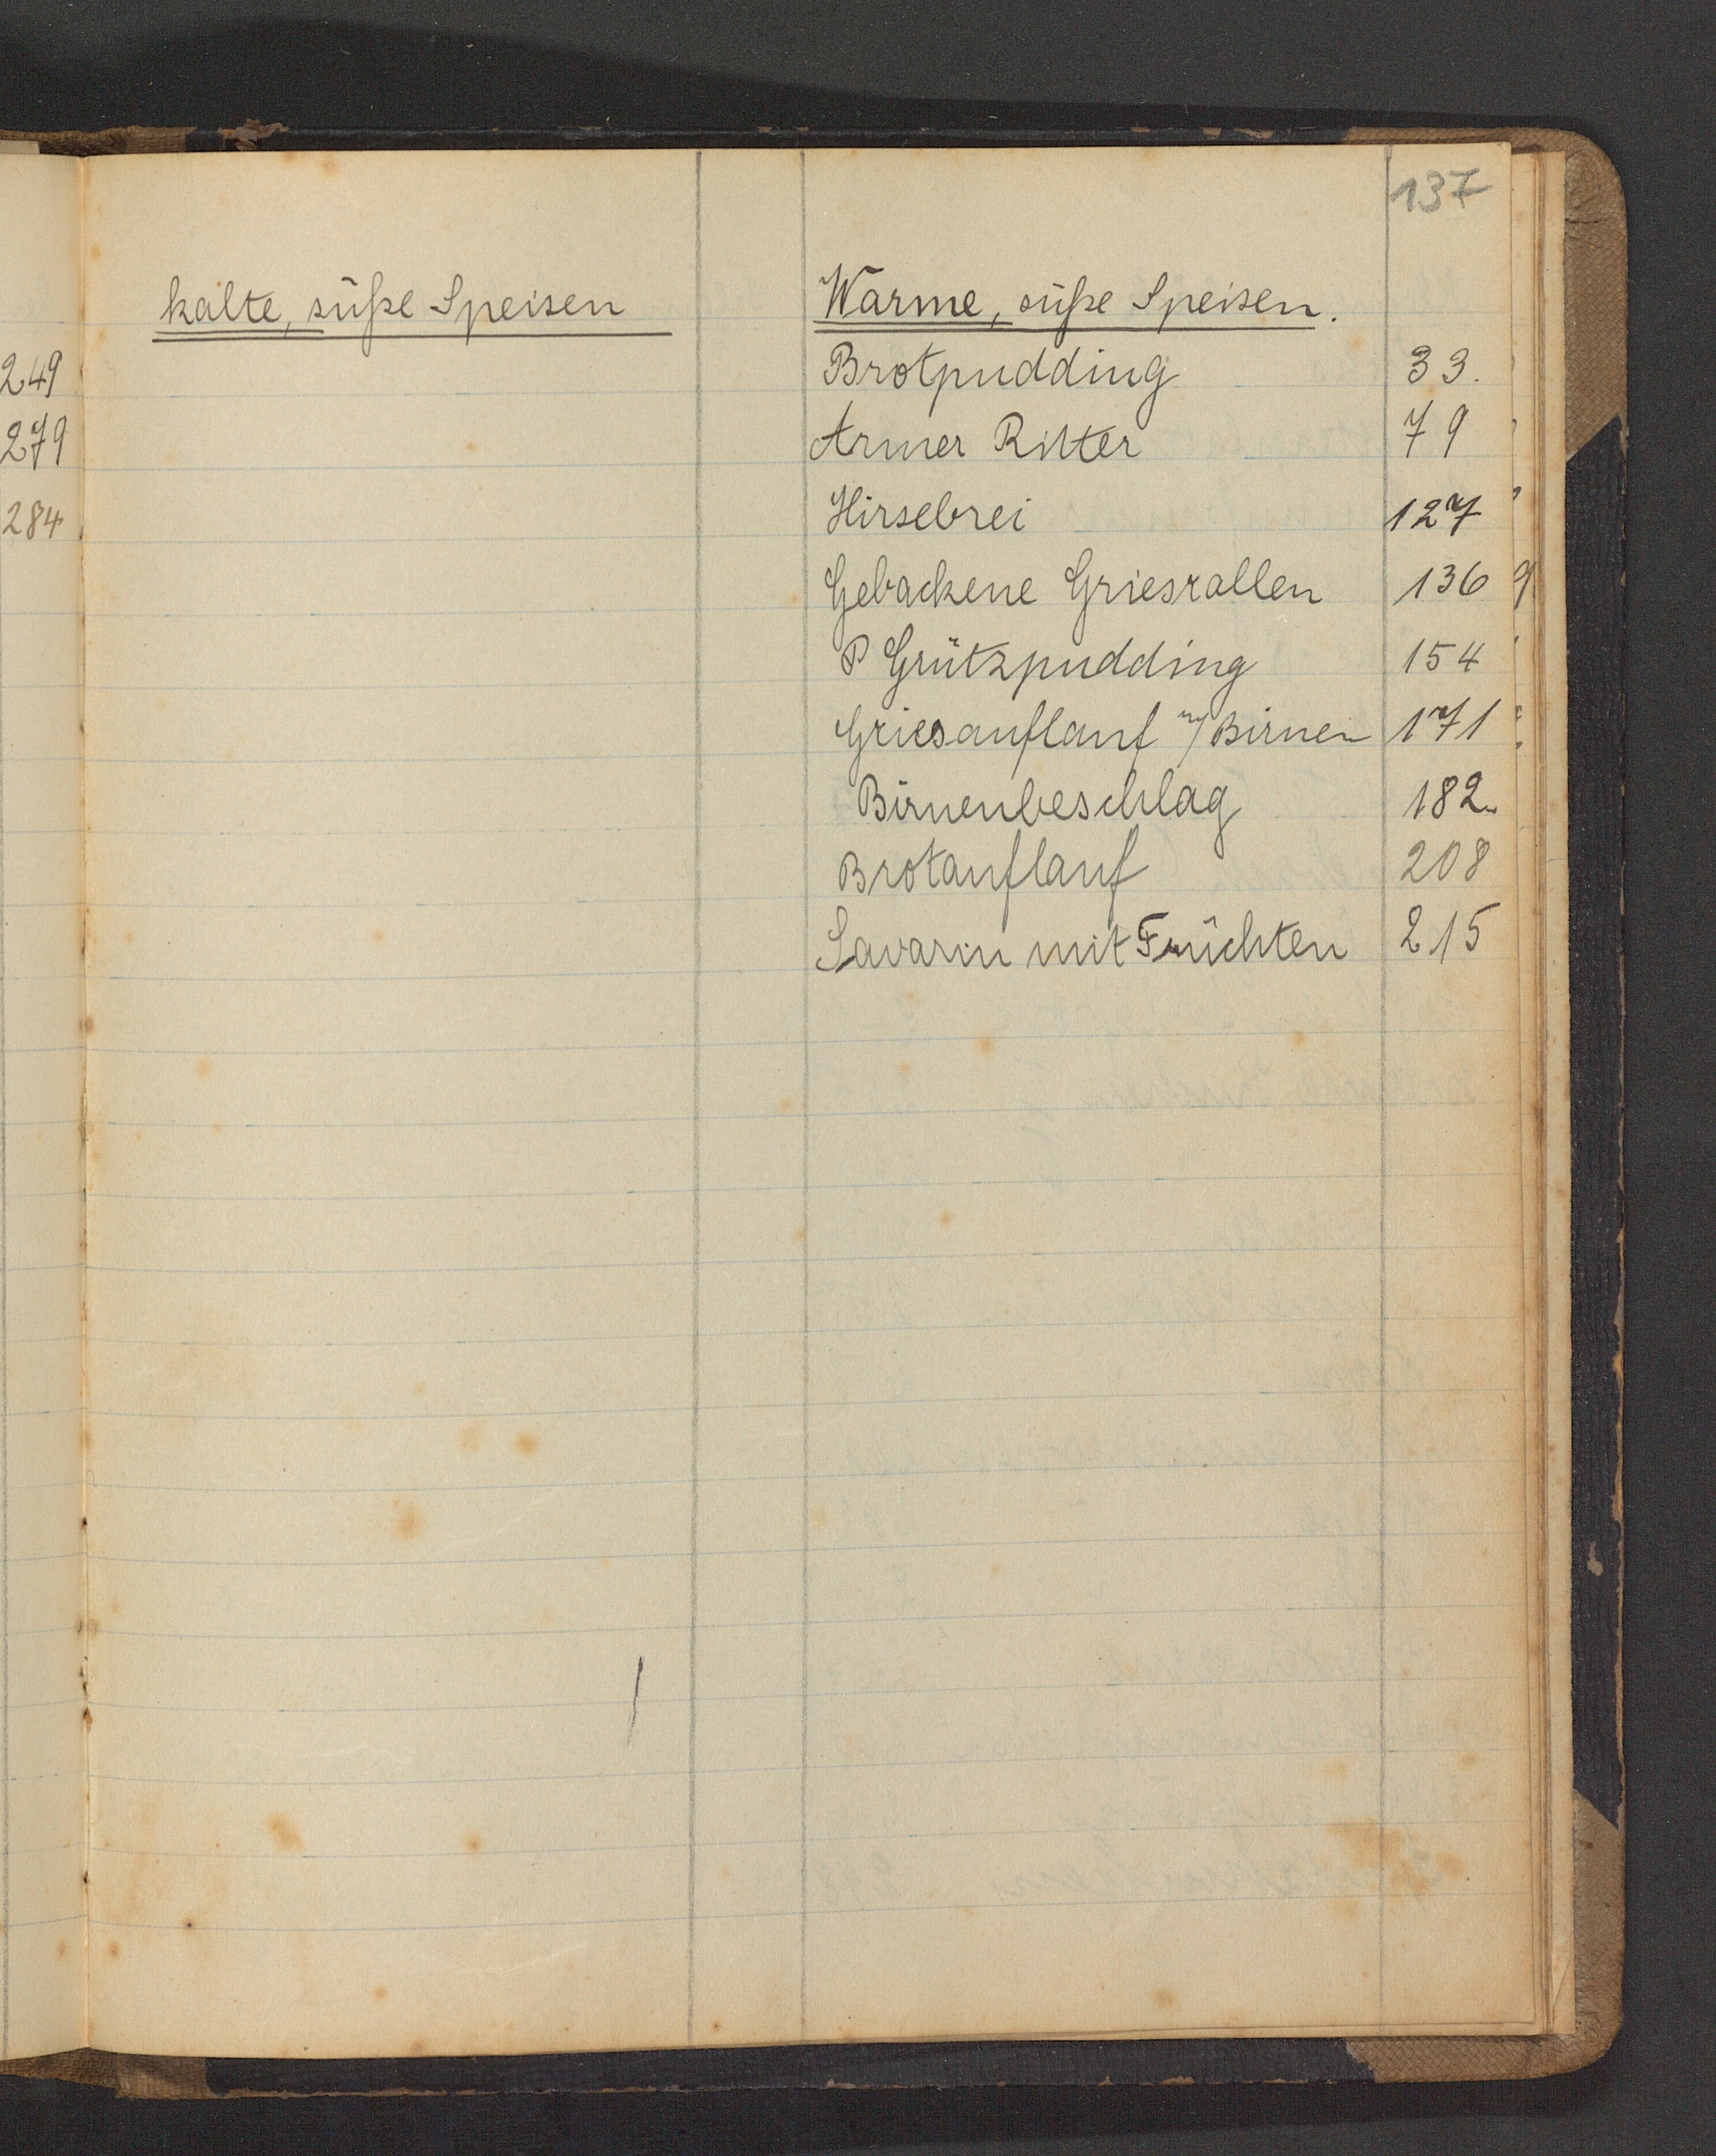 137
kalte, süße Speisen
249
279
284
Warme, süße Speisen.
Brotpudding 33.
Armer Ritter 79
Hirsebrei 127
Gebackene Griesrollen 136
P Grützpudding 154
Griesauflauf m/ Birnen 171
Birnenbeschlag 182
Brotauflauf 208
Savarin mit Früchten 215